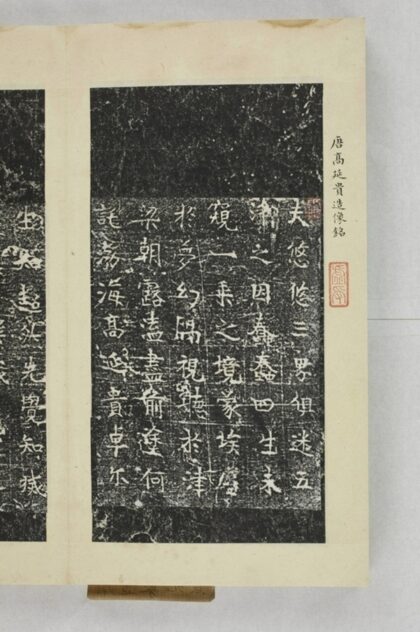 唐高延貴造像銘
夫悠悠三界俱迷五
之因蠢蠢四生未
窺一乘之境蒙埃塵
於夢幻隔視聽於津
梁朝露溘盡前途何
託渤海高延貴卓尔
生知超然先覺知滅